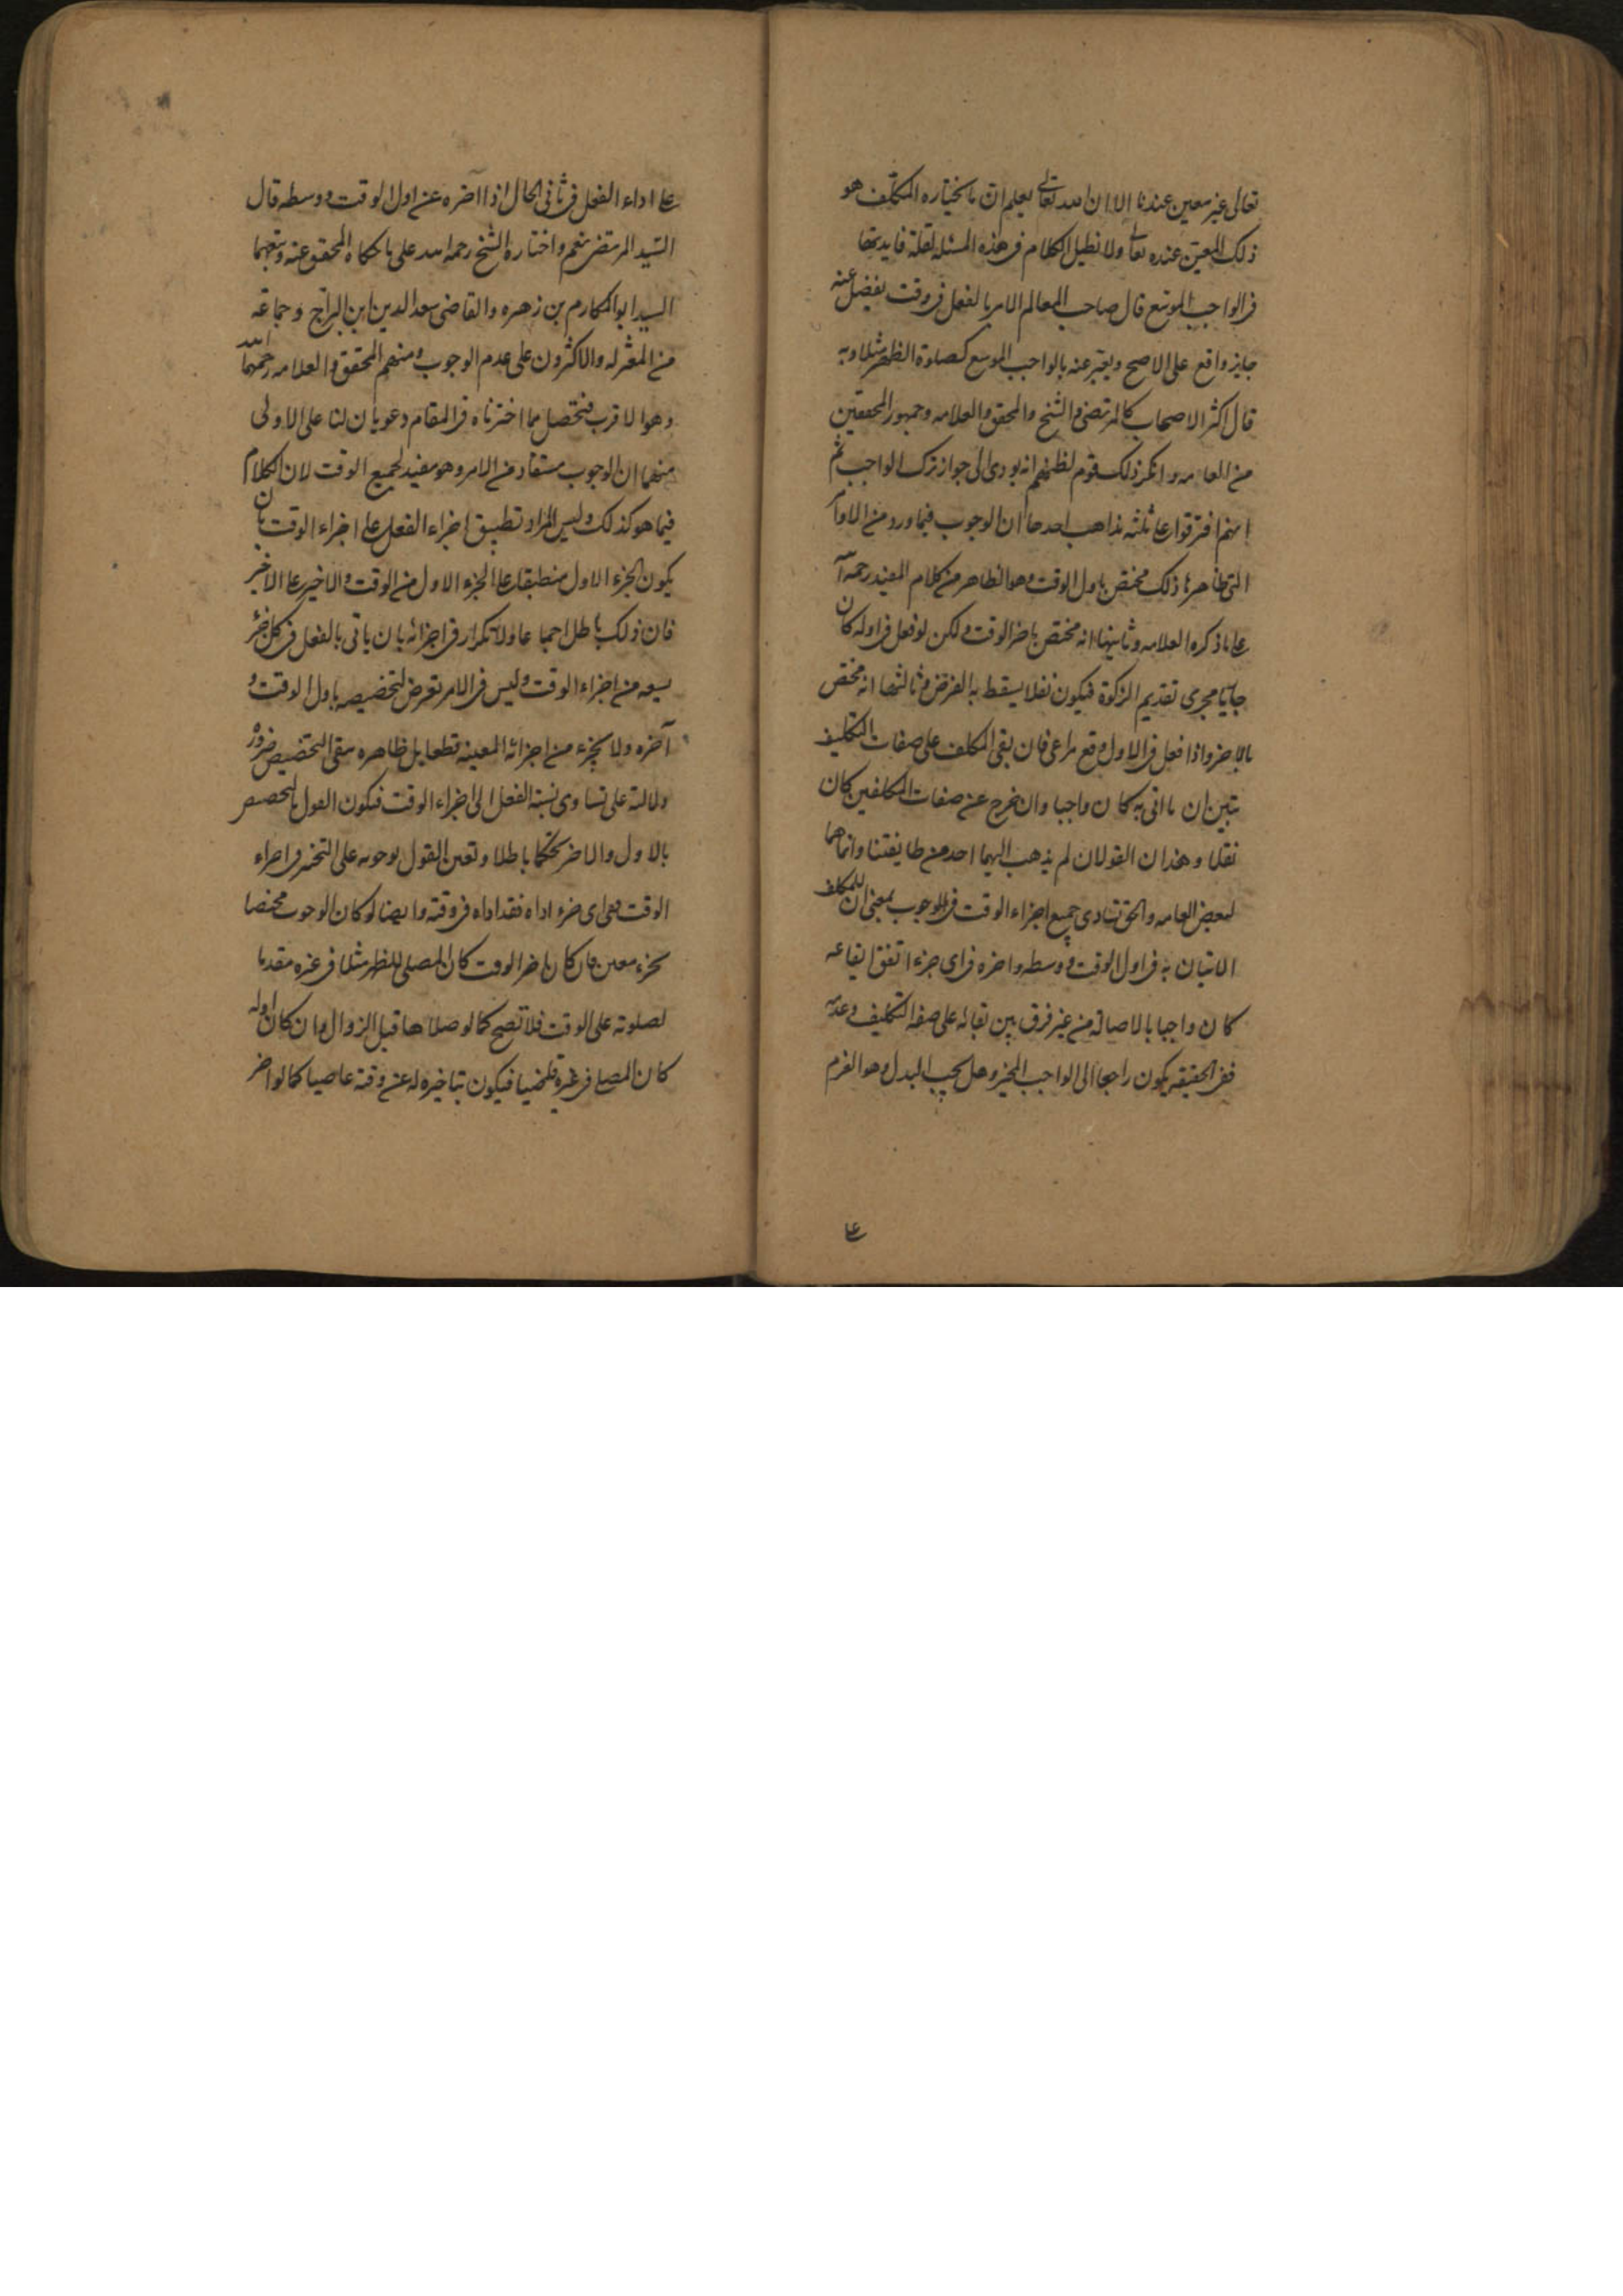 تعالى غير معين عندنا الا ان الله تعالى يعلم ان ما يختاره المكلف هو
ذلك المعين عنده تعالى ولا نطيل الكلام فى هذه المسئله لقلة فايدتها
فى الواجب الموسع قال صاحب المعالم الامر بالفعل فى وقت يفضل عنه
جايز واقع على الاصح ويعبر عنه بالواجب الموسع كصلوة الظهر مثلا وبه
قال اكثر الاصحاب كالمرتضى والشيخ والمحقق والعلامه وجمهور المحققين
من العامه وانكر ذلك قوم لظنهم انه يودى الى جواز ترك الواجب ثم
انهم افترقوا على ثلثه مذاهب احدها ان الوجوب فيما ورد من الاوامر
التى ظاهرها ذلك مختص باول الوقت وهو الظاهر من كلام المفيد رحمه الله
على ما ذكره العلامه وثانيها انه مختص باخر الوقت ولكن لو فعل فى اوله كان
جاريا مجرى تقديم الزكوة فيكون نفلا يسقط به الفرض وثالثها انه مختص
بالاخر واذا فعل فى الاول وقع مراعى فان بقى المكلف على صفات التكليف
تبين ان ما اتى به كان واجبا وان خرج عن صفات المكلفين كان
نفلا وهذان القولان لم يذهب اليهما احد من طايفتنا وانما هما
لبعض العامه والحق تساوى جميع اجزاء الوقت فى الوجوب بمعنى ان للمكلف
الاتيان به فى اول الوقت ووسطه واخره فى اى جزء اتفق ايقاعه
كان واجبا بالاصالة من غير فرق بين بقائه على صفه التكليف وعدمه
ففى الحقيقه يكون راجعا الى الواجب المخير وهل يجب البدل وهو العزم
على
على اداء الفعل فى ثانى الحال اذا اخره عن اول الوقت ووسطه قال
السيد المرتضى نعم واختاره الشيخ رحمه الله على ما حكاه المحقق عنه وتبعهما
السيد ابو المكارم بن زهره والقاضى سعد الدين ابن البراج وجماعه
من المعتزله والاكثرون على عدم الوجوب ومنهم المحقق والعلامه رحمهما الله
وهو الاقرب فتحصل مما اخترناه فى المقام دعويان لنا على الاولى
منهما ان الوجوب مستفاد من الامر وهو مقيد بجميع الوقت لان الكلام
فيما هو كذلك وليس المراد تطبيق اجزاء الفعل على اجزاء الوقت بان
يكون الجزء الاول منطبقا على الجزء الاول من الوقت والاخير على الاخير
فان ذلك باطل اجماعا ولا تكراره فى اجزائه بان ياتى بالفعل فى كل جزء
يسعه من اجزاء الوقت وليس فى الامر تعرض لتخصيصه باول الوقت و
آخره ولا بجزء من اجزائه المعينه قطعا بل ظاهره ينفى التخصيص ضرورة
دلالته على تساوى نسبة الفعل الى اجزاء الوقت فيكون القول بالتخصيص
بالاول والاخر تحكما باطلا وتعين القول بوجوبه على التخيير فى اجزاء
الوقت ففى اى جزء اداه فقد اداه فى وقته وايضا لو كان الوجوب مختصا
بجزء معين فان كان اخر الوقت كان المصلى للظهر مثلا فى غيره مقدما
لصلوته على الوقت فلا تصح كما لو صلاها قبل الزوال وان كان اوله
كان المصلى فى غيره قاضيا فيكون بتاخيره له عن وقته عاصيا كما لو اخر